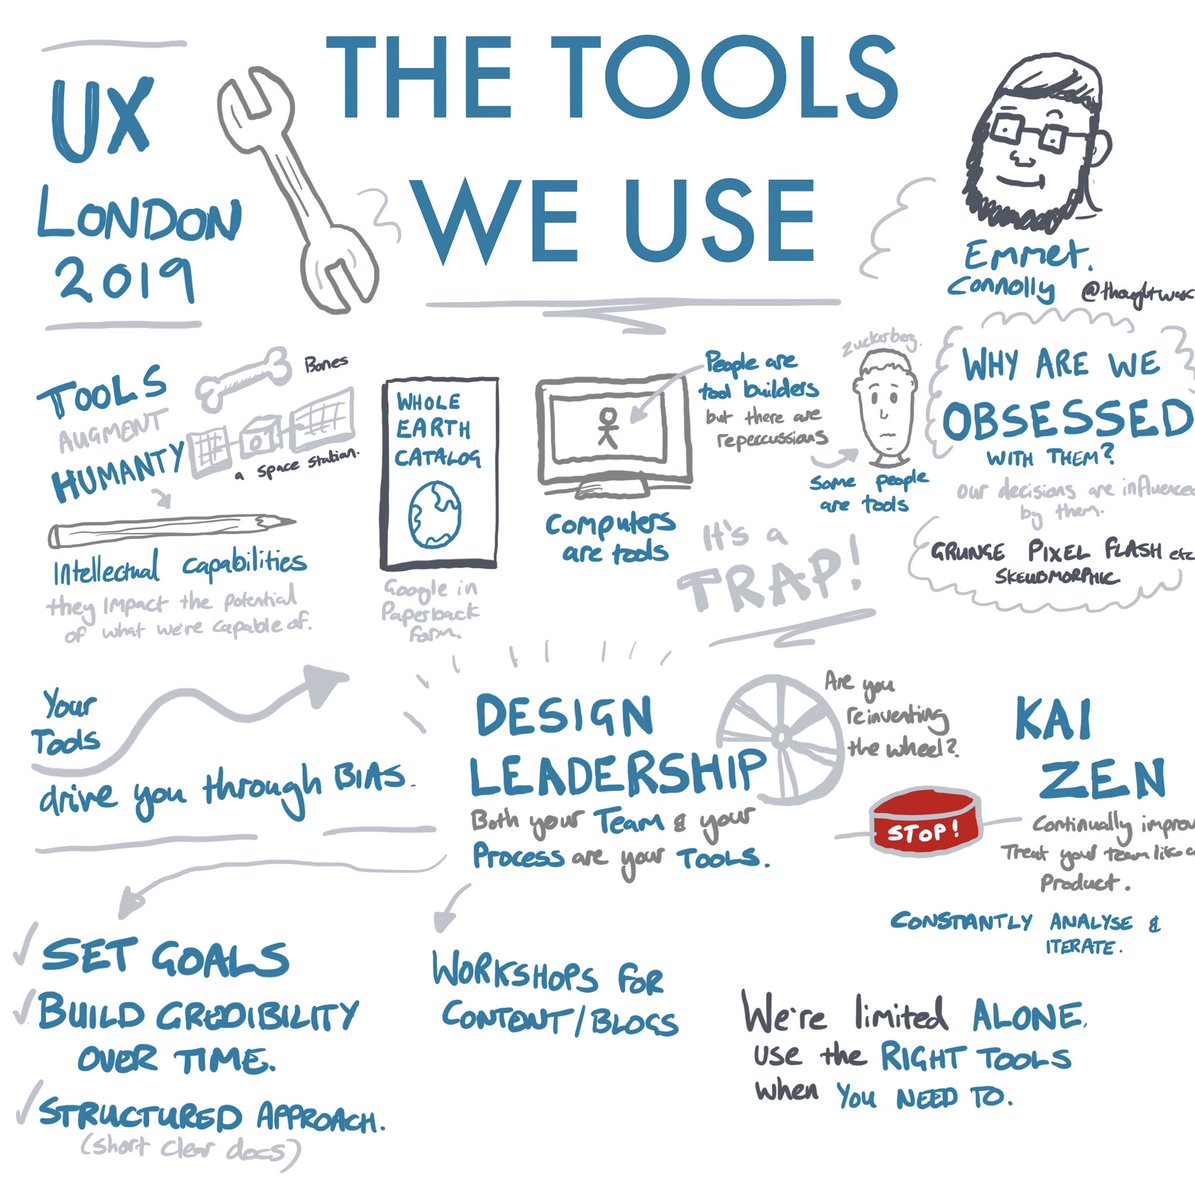 UX
LONDON
2019
THE TOOLS
WE USE
Emmet.
Connolly @thoughtwax
TOOLS
AUGMENT
HUMANTY
Bones
a space station.
Intellectual capabilities
they impact the potential
of what we're capable of.
WHOLE
EARTH
CATALOG
Google in
Paperback
form.
Computers
are tools
People are
tool builders
but there are
repercussions
Zuckerberg.
Some people
are tools
IT'S A
TRAP!
WHY ARE WE
OBSESSED
WITH THEM?
our decisions are influenced
by them.
GRUNGE PIXEL FLASH etc
SKEUDMORPHIC
Your
Tools
drive you through BIAS.
DESIGN
LEADERSHIP
Both your TEAM & your
PROCESS are your TOOLS.
Are you
reinventing
the wheel?
STOP!
KAI
ZEN
Continually improv
Treat your team like a
Product.
CONSTANTLY ANALYSE &
ITERATE.
SET GOALS
BUILD CREDIBILITY
OVER TIME.
STRUCTURED APPROACH.
(short clear docs)
WORKSHOPS FOR
CONTENT/BLOGS
We're limited ALONE.
use the RIGHT TOOLS
when YOU NEED TO.